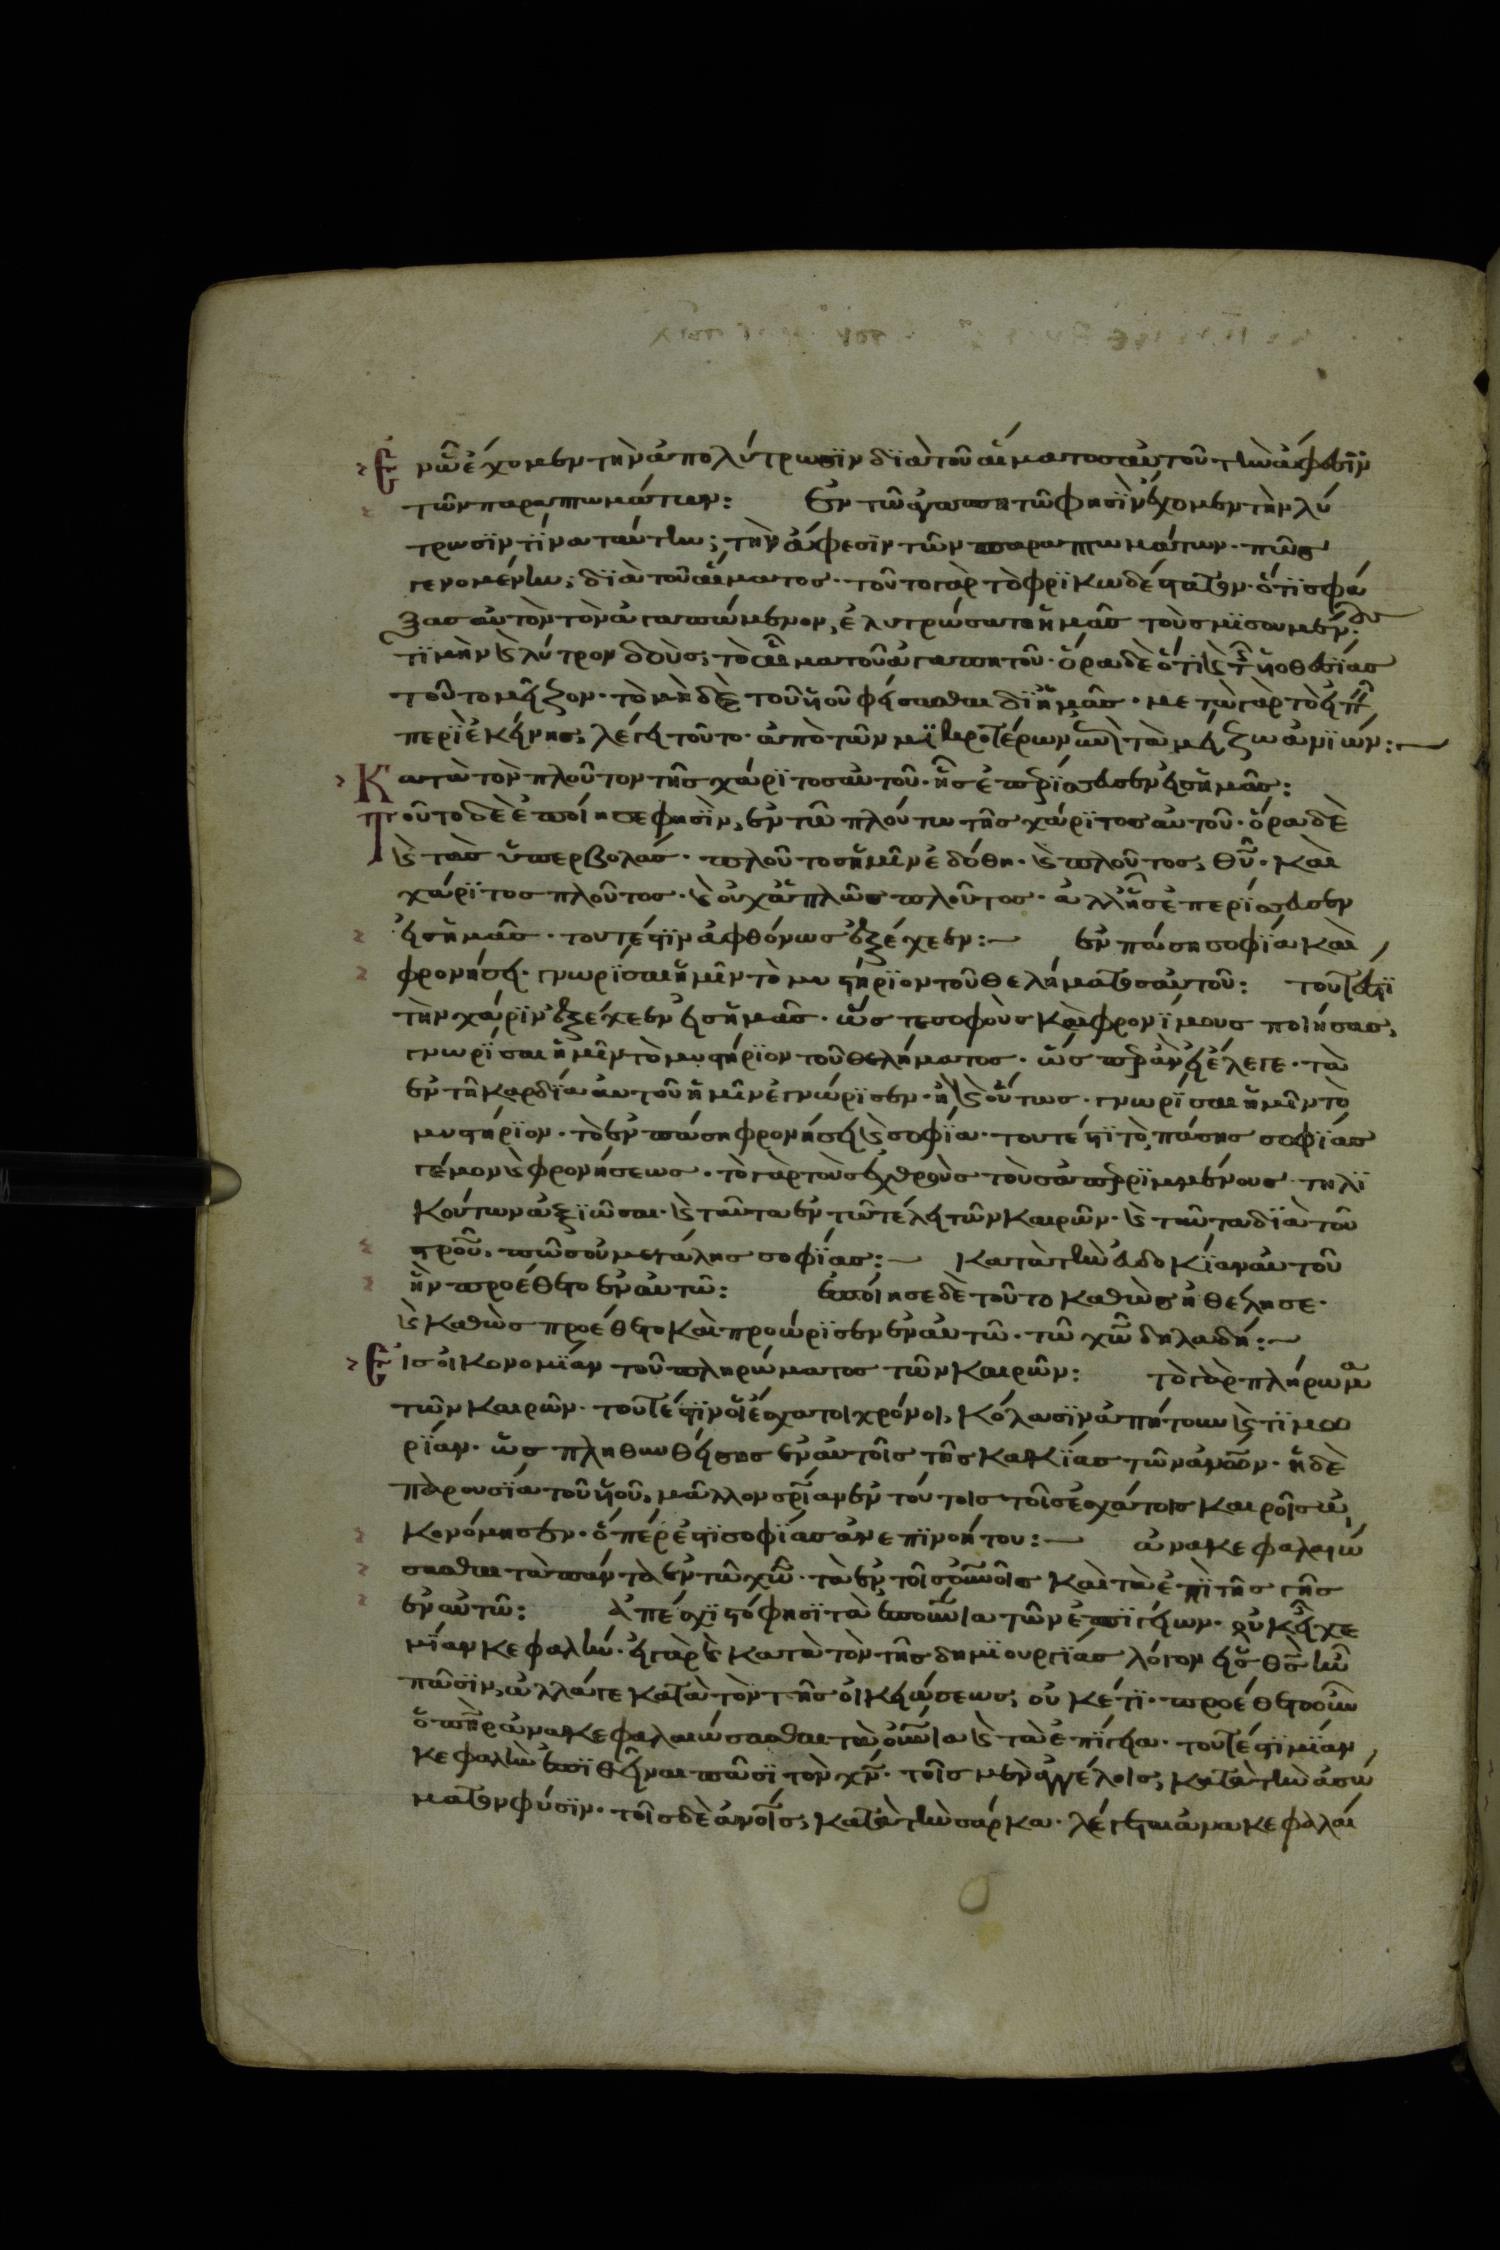 Ἐν ᾧ ἔχομεν τὴν ἀπολύτρωσϊν δϊὰ τοῦ αἵματος αὐτοῦ τὴν ἄφεσϊν
τῶν παραπτωμάτων: Ἐν τῷ ἀγαπητῷ φησϊν ἔχομεν τὴν λύ
τρωσϊν τίνα ταύτην; τὴν ἄφεσϊν τῶν παραπτωμάτων· πῶς
γενομένην; δϊὰ τοῦ αἵματος· τοῦτο γὰρ τὸ φρϊκωδέστατον· ὅτϊ σφά
ξας αὐτὸν τὸν ἀγαπώμενον, ἐλυτρώσατο ἡμᾶς τοὺς μϊσουμέν
τϊμὴν ϗ λύτρον δοὺς; τὸ αἷμα τοῦ ἀγαπητοῦ· ὅρα δὲ ὅτι ϗ τῆς υἱοθεσϊας
τοῦτο μεῖζον· τὸ μηδὲ τοῦ υἱοῦ φείσασθαι δϊ ἡμᾶς· μετὰ γὰρ τὸ εἰπεῖν
περὶ ἐκείνης; λέγει τοῦτο· ἀπὸ τῶν μϊκροτέρων ἐπὶ τὰ μείζω ἀνϊών:
Κατὰ τὸν πλοῦτον τῆς χάρϊτος αὐτοῦ· ἧς ἐπερϊσσευσεν εἰς ἡμᾶς:
Τοῦτο δὲ ἐποίησε φησϊν, ἐν τῷ πλούτῳ τῆς χάρϊτος αὐτοῦ· ὅρα δὲ
ϗ τὰς ὑπερβολάς· πλοῦτος ἡμῖν ἐδόθη· ϗ πλοῦτος, θῦ· καὶ
χάρϊτος πλοῦτος· ϗ οὐχ ἁπλῶς πλοῦτος· ἀλλ' ἧς ἐπερίσσευσεν
εἰς ἡμᾶς· τουτέστϊν ἀφθόνως ἐξέχεεν: ἐν πάσῃ σοφϊα καὶ
φρονήσει· γνωρϊσας ἡμῖν τὸ μυστήρϊον τοῦ θελήματος αὐτοῦ: τουτέστϊ
τὴν χάρϊν ἐξέχεεν εἰς ἡμᾶς· ὥς τε σοφοὺς καὶ φρονϊμους ποιήσας,
γνωρϊσαι ἡμῖν τὸ μυστήρϊον τοῦ θελήματος· ὡς περ ἂν εἰ ἔλεγε· τὰ
ἐν τῇ καρδϊα αὐτοῦ ἡμῖν ἐγνώρϊσεν· ἢ ϗ οὕτως· γνωρϊσας ἡμῖν τὸ
μυστήρϊον· τὸ ἐν πάσῃ φρονήσει ϗ σοφϊα· τουτέστϊ τὸ, πάσης σοφϊας
γέμον ϗ φρονήσεως· τὸ γὰρ τοὺς ἐχθροὺς τοὺς ἀπερρϊμμένους τηλϊ
κούτων ἀξϊῶσαι· ϗ ταῦτα ἐν τῷ τέλει τῶν καιρῶν· ϗ ταῦτα δϊὰ τοῦ
στροῦ, πῶς οὐ μεγάλης σοφϊας: Κατὰ τὴν εὐδοκϊαν αὐτοῦ
ἣν προέθετο ἐν αὐτῷ: Ἐποίησε δὲ τοῦτο καθὼς ἠθέλησε·
ϗ καθὼς προέθετο καὶ προώρϊσεν ἐν αὐτῷ· τῷ χῶ δηλαδή:
Εἰς οἰκονομϊαν τοῦ πληρώματος τῶν καιρῶν: τὸ γὰρ πλήρωμα
τῶν καιρῶν· τουτέστϊν οἱ ἔσχατοι χρόνοι, κόλασϊν ἀπῄτουν ϗ τϊμω
ρϊαν· ὡς πληθυνθείσης ἐν αὐτοῖς τῆς κακϊας τῶν ἀνων· ἡ δὲ
παρουσϊα τοῦ υἱοῦ, μᾶλλον σρϊαν ἐν τούτοις τοῖς ἐσχάτοις καιροῖς ᾠ
κονόμησεν· ὅπέρ ἐστϊ σοφϊας ἀνεπϊνοήτου: ἀνακεφαλαιώ
σασθαι τὰ πάντα ἐν τῷ χῶ· τὰ ἐν τοῖς οὐνοῖς καὶ τὰ ἐπϊ τῆς γῆς
ἐν αὐτῷ: Ἀπέσχϊστό φησϊ τὰ ἐπουνια τῶν ἐπϊγείων· οὐκ εἶχε
μϊαν κεφαλήν· εἰ γὰρ ϗ κατὰ τὸν τῆς δημϊουργϊας λόγον εἷς θς ἦν
πᾶσϊν, ἀλλά γε κατὰ τὸν τῆς οἰκειώσεως, οὐκέτϊ· προέθετο οὖν
ὁ πηρ ἀνακεφαλαιώσασθαι τὰ οὐνια ϗ τὰ ἐπϊγεια· τουτέστϊ μϊαν
κεφαλὴν ἐπϊθεῖναι πᾶσϊ τὸν χν· τοῖς μὲν ἀγγέλοις, κατὰ τὴν ἀσώ
ματον φύσϊν· τοῖς δὲ ἀνοις, κατὰ τὴν σάρκα· λέγεται ἀνακεφαλαί